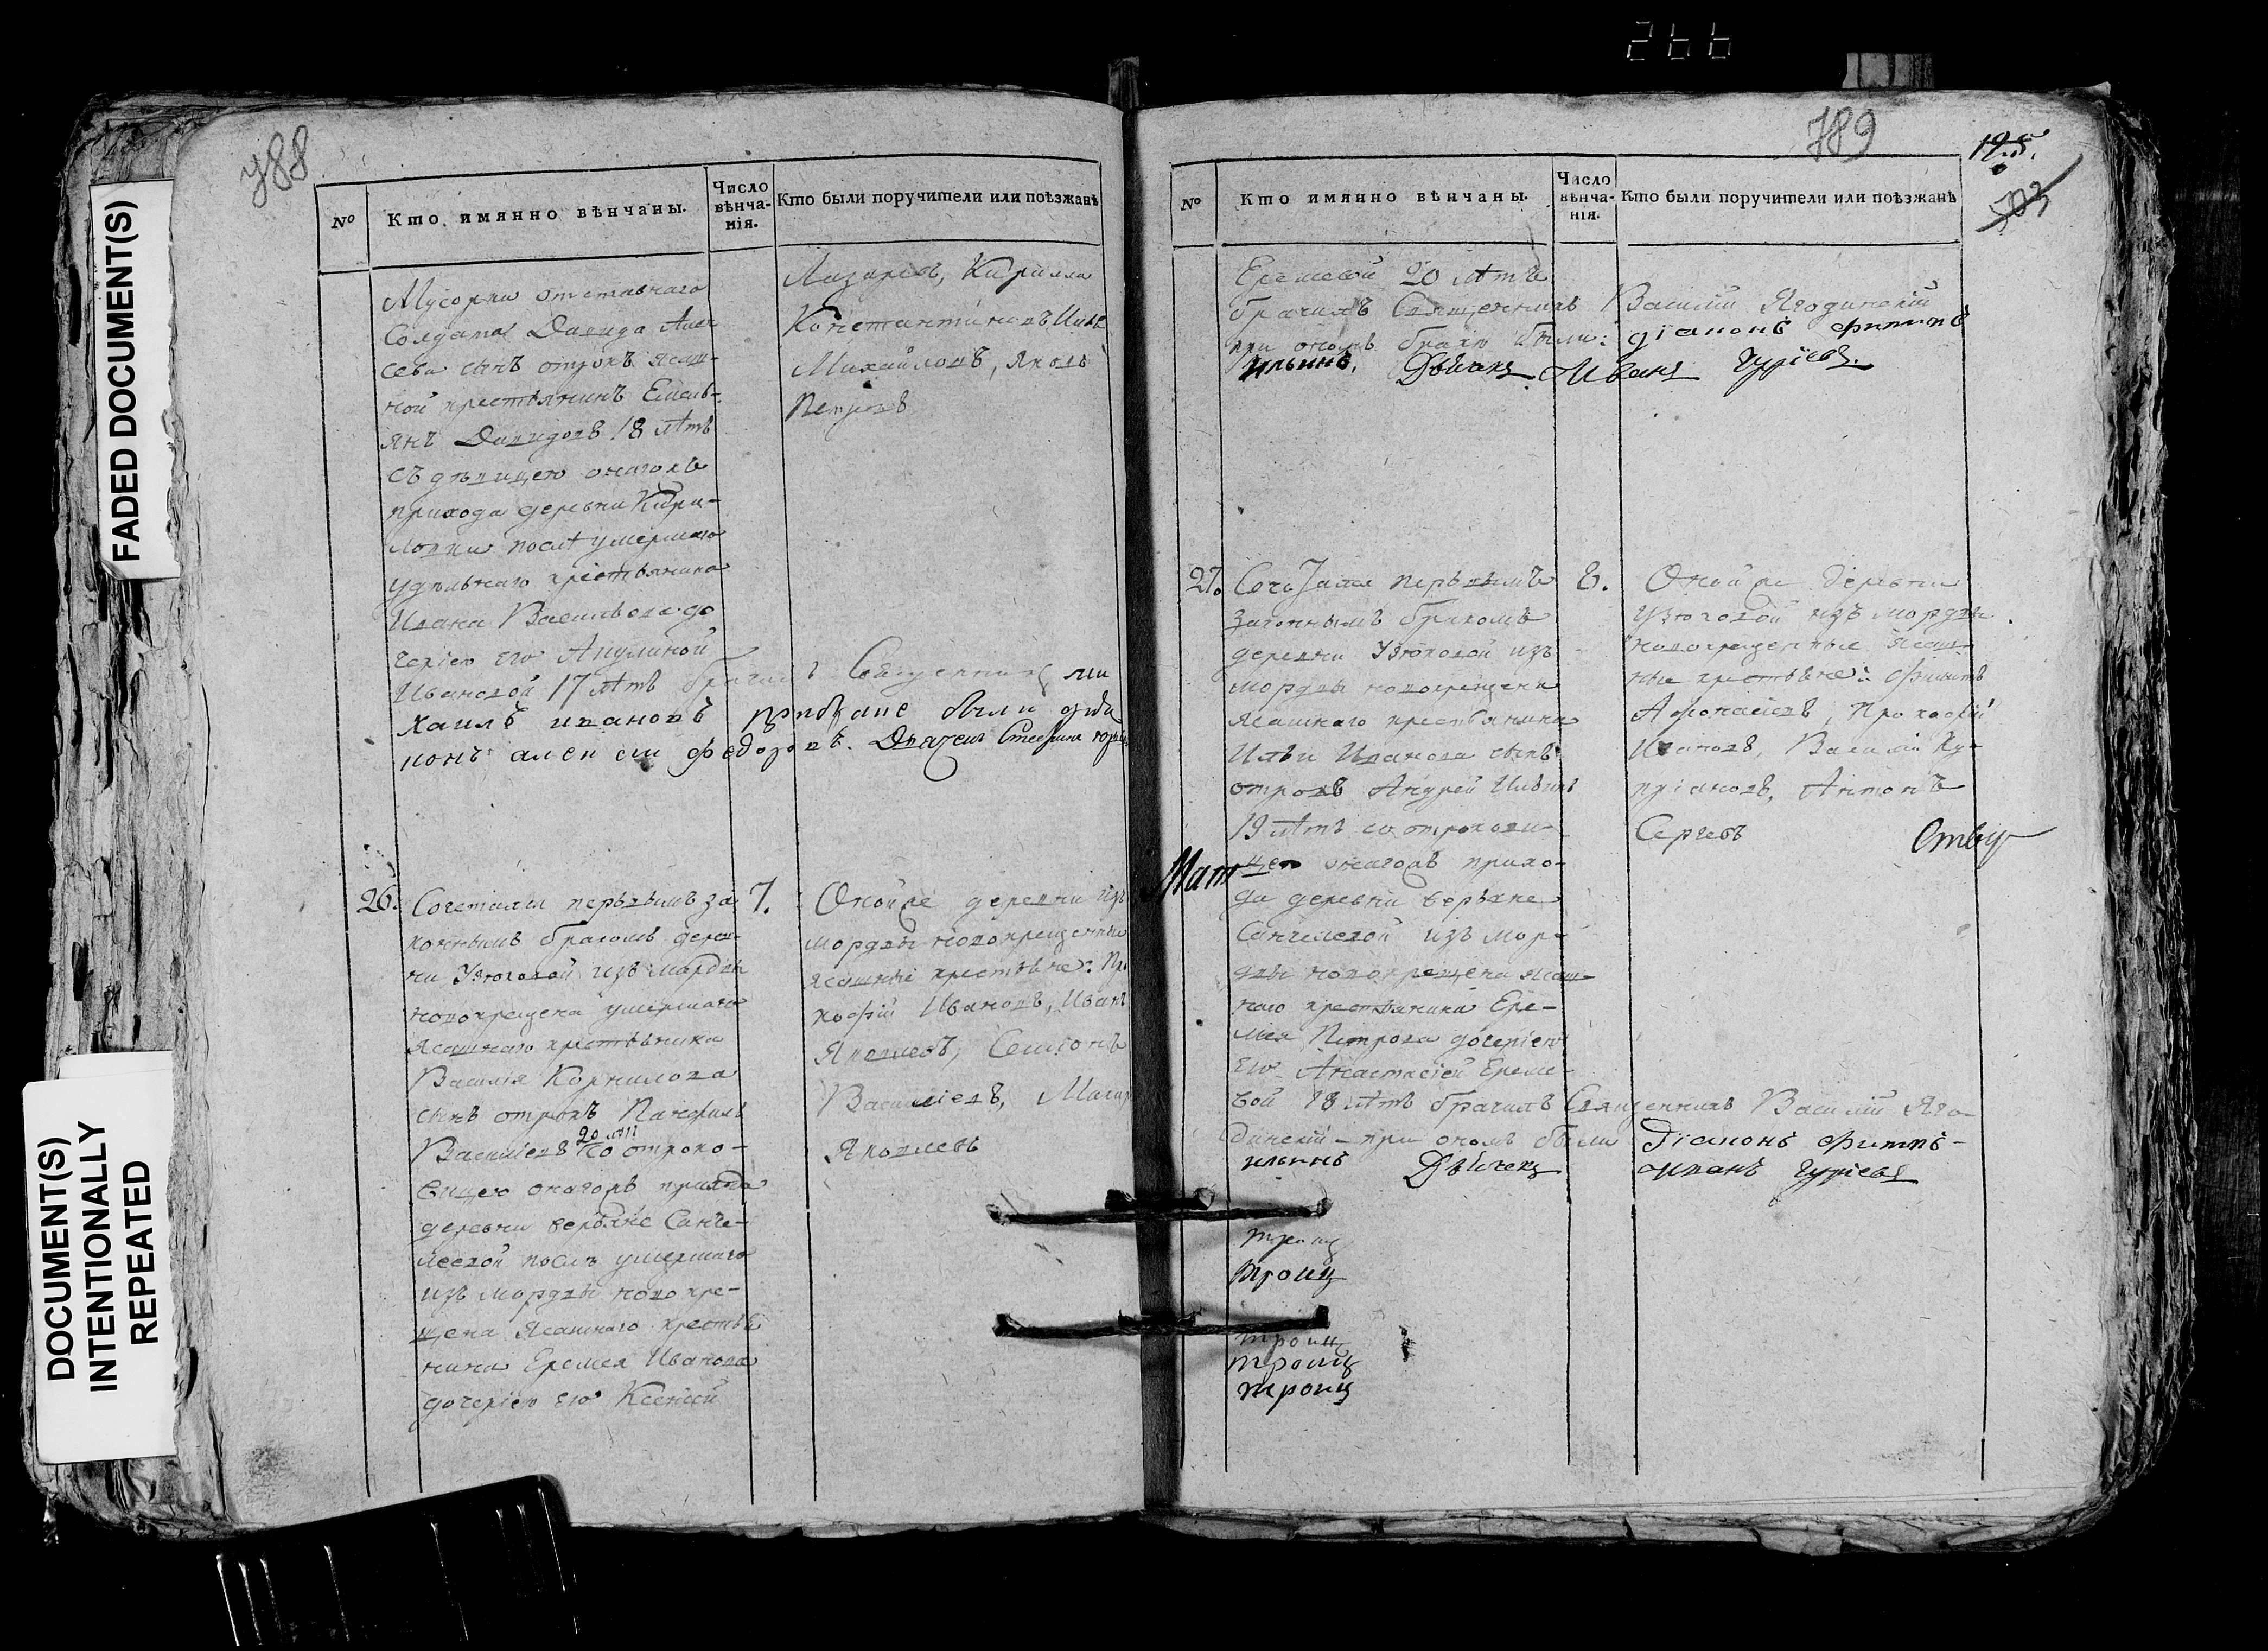 266
FADED DOCUMENT(S)
DOCUMENT(S)
INTENTIONALLY
REPEATED
788
№ Кто имянно вѣнчаны. Число вѣнча-нія. Кто были поручители или поѣзжанѣ
Мусорки отставнаго
Солдата Давида Алек
сева сынъ отрокъ ясаш-
ной крестьянинъ Емель-
янъ Давидовъ 18 лѣтъ
съ дѣвицею онагожъ
прихода деревни Кири-
ловки послѣ умершаго
удѣльнаго крестьянина
Ивана Васильева до
черію его Акулиной
Ивановой 17 лѣтъ Священникъ ми
хаилъ ивановъ были
федоровъ.
Лазаревъ, Кирилла
Константиновъ
Михайловъ, Яковъ
Петровъ
26. Сочетались первымъ за 7.
коннымъ бракомъ дерев-
ни Узюковой изъ мордвы
новокрещена умершаго
ясашнаго крестьянина
Василія Корнилова
сынъ отрокъ Панфилъ
Васильевъ 20 лѣтъ со отроко-
вицею онагожъ прихода
деревни верхне Санче-
леевой послѣ умершаго
изъ мордвы новокре-
щена Ясашнаго крестья
нина Еремея Иванова
дочерію его Ксенией
Оной же деревни изъ
мордвы новокрещенные
ясашные крестьяне: Про
кофій Ивановъ, Иванъ
Яковлевъ, Семіонъ
Васильевъ, Макар
Яковлевъ
789
195.
503
№ Кто имянно вѣнчаны. Число вѣнча-нія. Кто были поручители или поѣзжанѣ
Еремевой 20 лѣтъ
брачилъ Священникъ Василій Ягодинскій
при ономъ бракѣ были: діаконъ филипъ
ильинъ, Дьячекъ Иванъ Гурьевъ.
27. Сочетался первымъ 8.
законнымъ бракомъ
деревни Узюковой изъ
мордвы новокрещена
Ясашнаго крестьянина
Ильи Иванова сынъ
отрокъ Андрей Ильинъ
19 лѣтъ со отрокови-
цею онагожъ прихо-
да деревни верхне
Санчелеевой изъ мор-
двы новокрещена ясаш-
наго крестьянина Ере-
мея Петрова дочерію
его Анастасіей Ереме-
вой 18 лѣтъ брачилъ Священникъ Василій Яго
динскій - при ономъ были Діаконъ филипъ-
ильинъ Дьячекъ иванъ гурьевъ
Оной же деревни
Узюковой изъ мордвы
новокрещенные Ясаш-
ные крестьяне: Филипъ
Афонасіевъ, Прокофій
Ивановъ, Василій Ку-
пріановъ, Антонъ
Сергеевъ
Троиц
Троиц
троиц
троиц
троиц